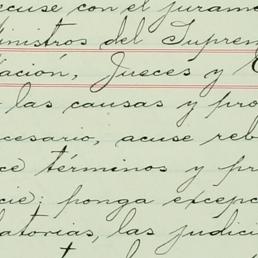 recuse con el juram
inistros del Suprem
ación, Jueces y
las causas y pro
cesario, acuse reb
ce términos y pr
cie; ponga excepc
latorias, las judici